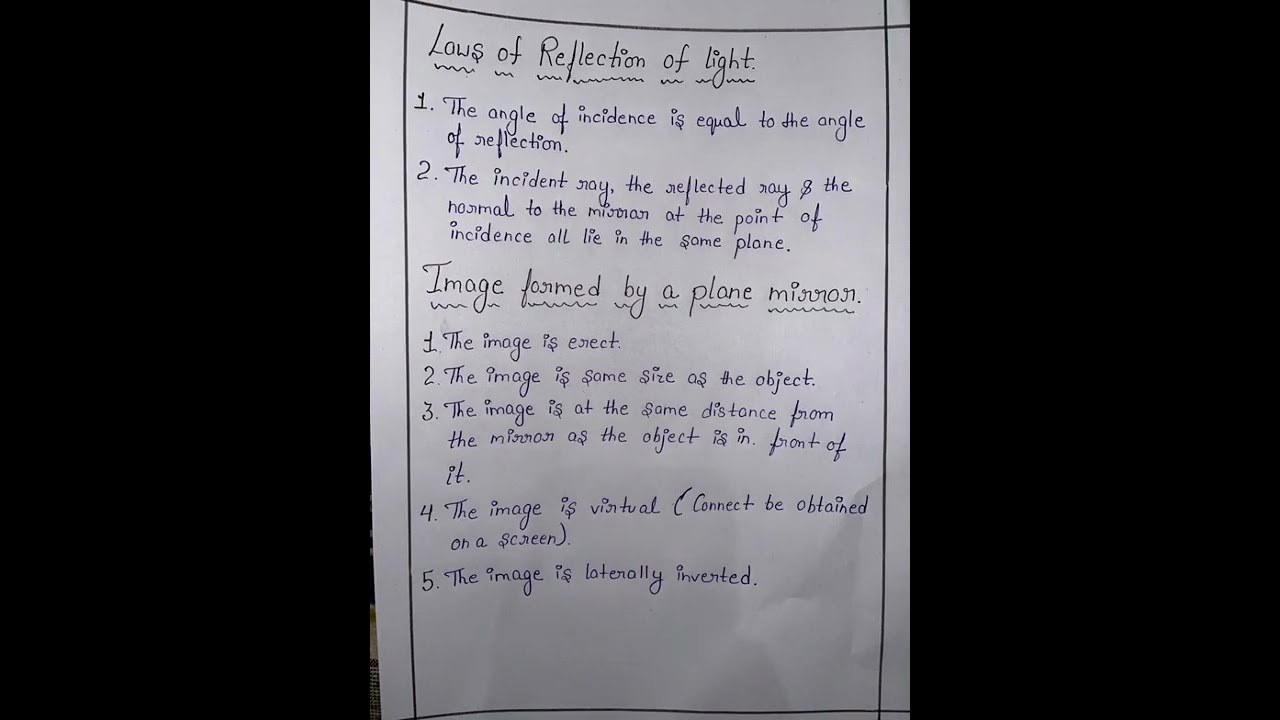 Laws of Reflection of light.
1. The angle of incidence is equal to the angle
of reflection.
2. The incident ray, the reflected ray & the
normal to the mirror at the point of
incidence all lie in the same plane.
Image formed by a plane mirror.
1. The image is erect.
2. The image is same size as the object.
3. The image is at the same distance from
the mirror as the object is in. front of
it.
4. The image is virtual (Connect be obtained
on a screen).
5. The image is laterally inverted.